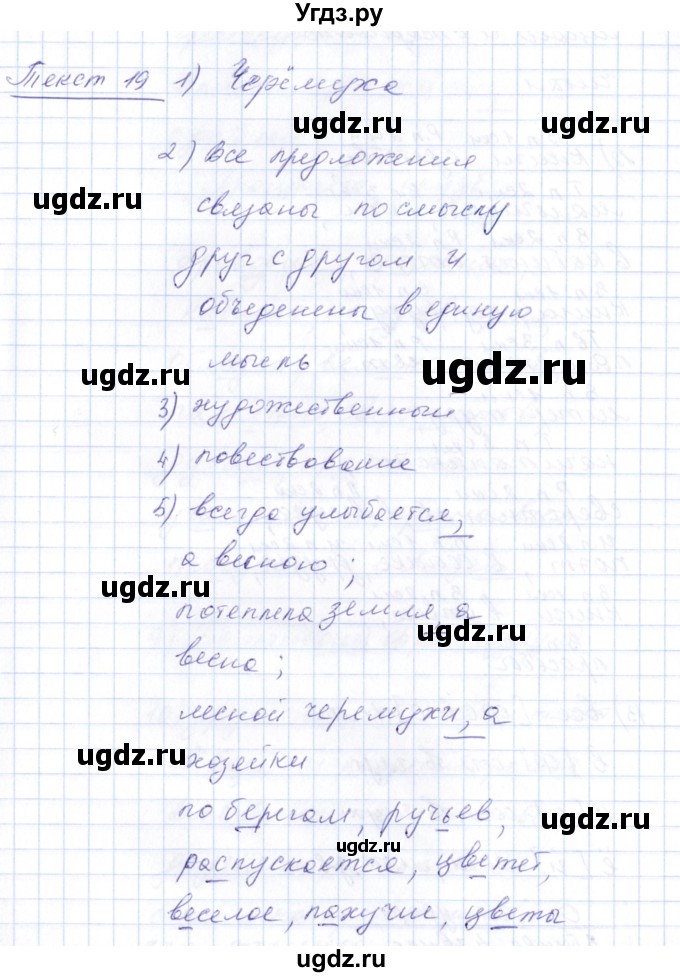 Угдз.ру
Текст 19 1) Черёмуха
ugdz.ru ugdz.ru
2) Все предложения
ugdz.ru
связаны по смыслу
друг с другом и
объеденены в единую
мысль
ugdz.ru ugdz.ru
3) художественный
4) повествование
5) всегда улыбается,
а весною;
ugdz.ru
потеплела земля, а
ugdz.ru
весна;
лесной черемухи, а
ugdz.ru
хозяйки
по берегам, ручьев,
ugdz.ru
ugdz.ru
распускается, цветет,
веселое, пахучие, цветы
ugdz.ru